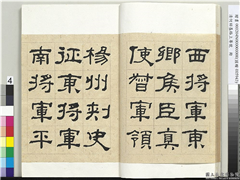 西將軍東
鄉侯臣真
使督軍領
楊州刺史
征東將軍
南將軍平
4